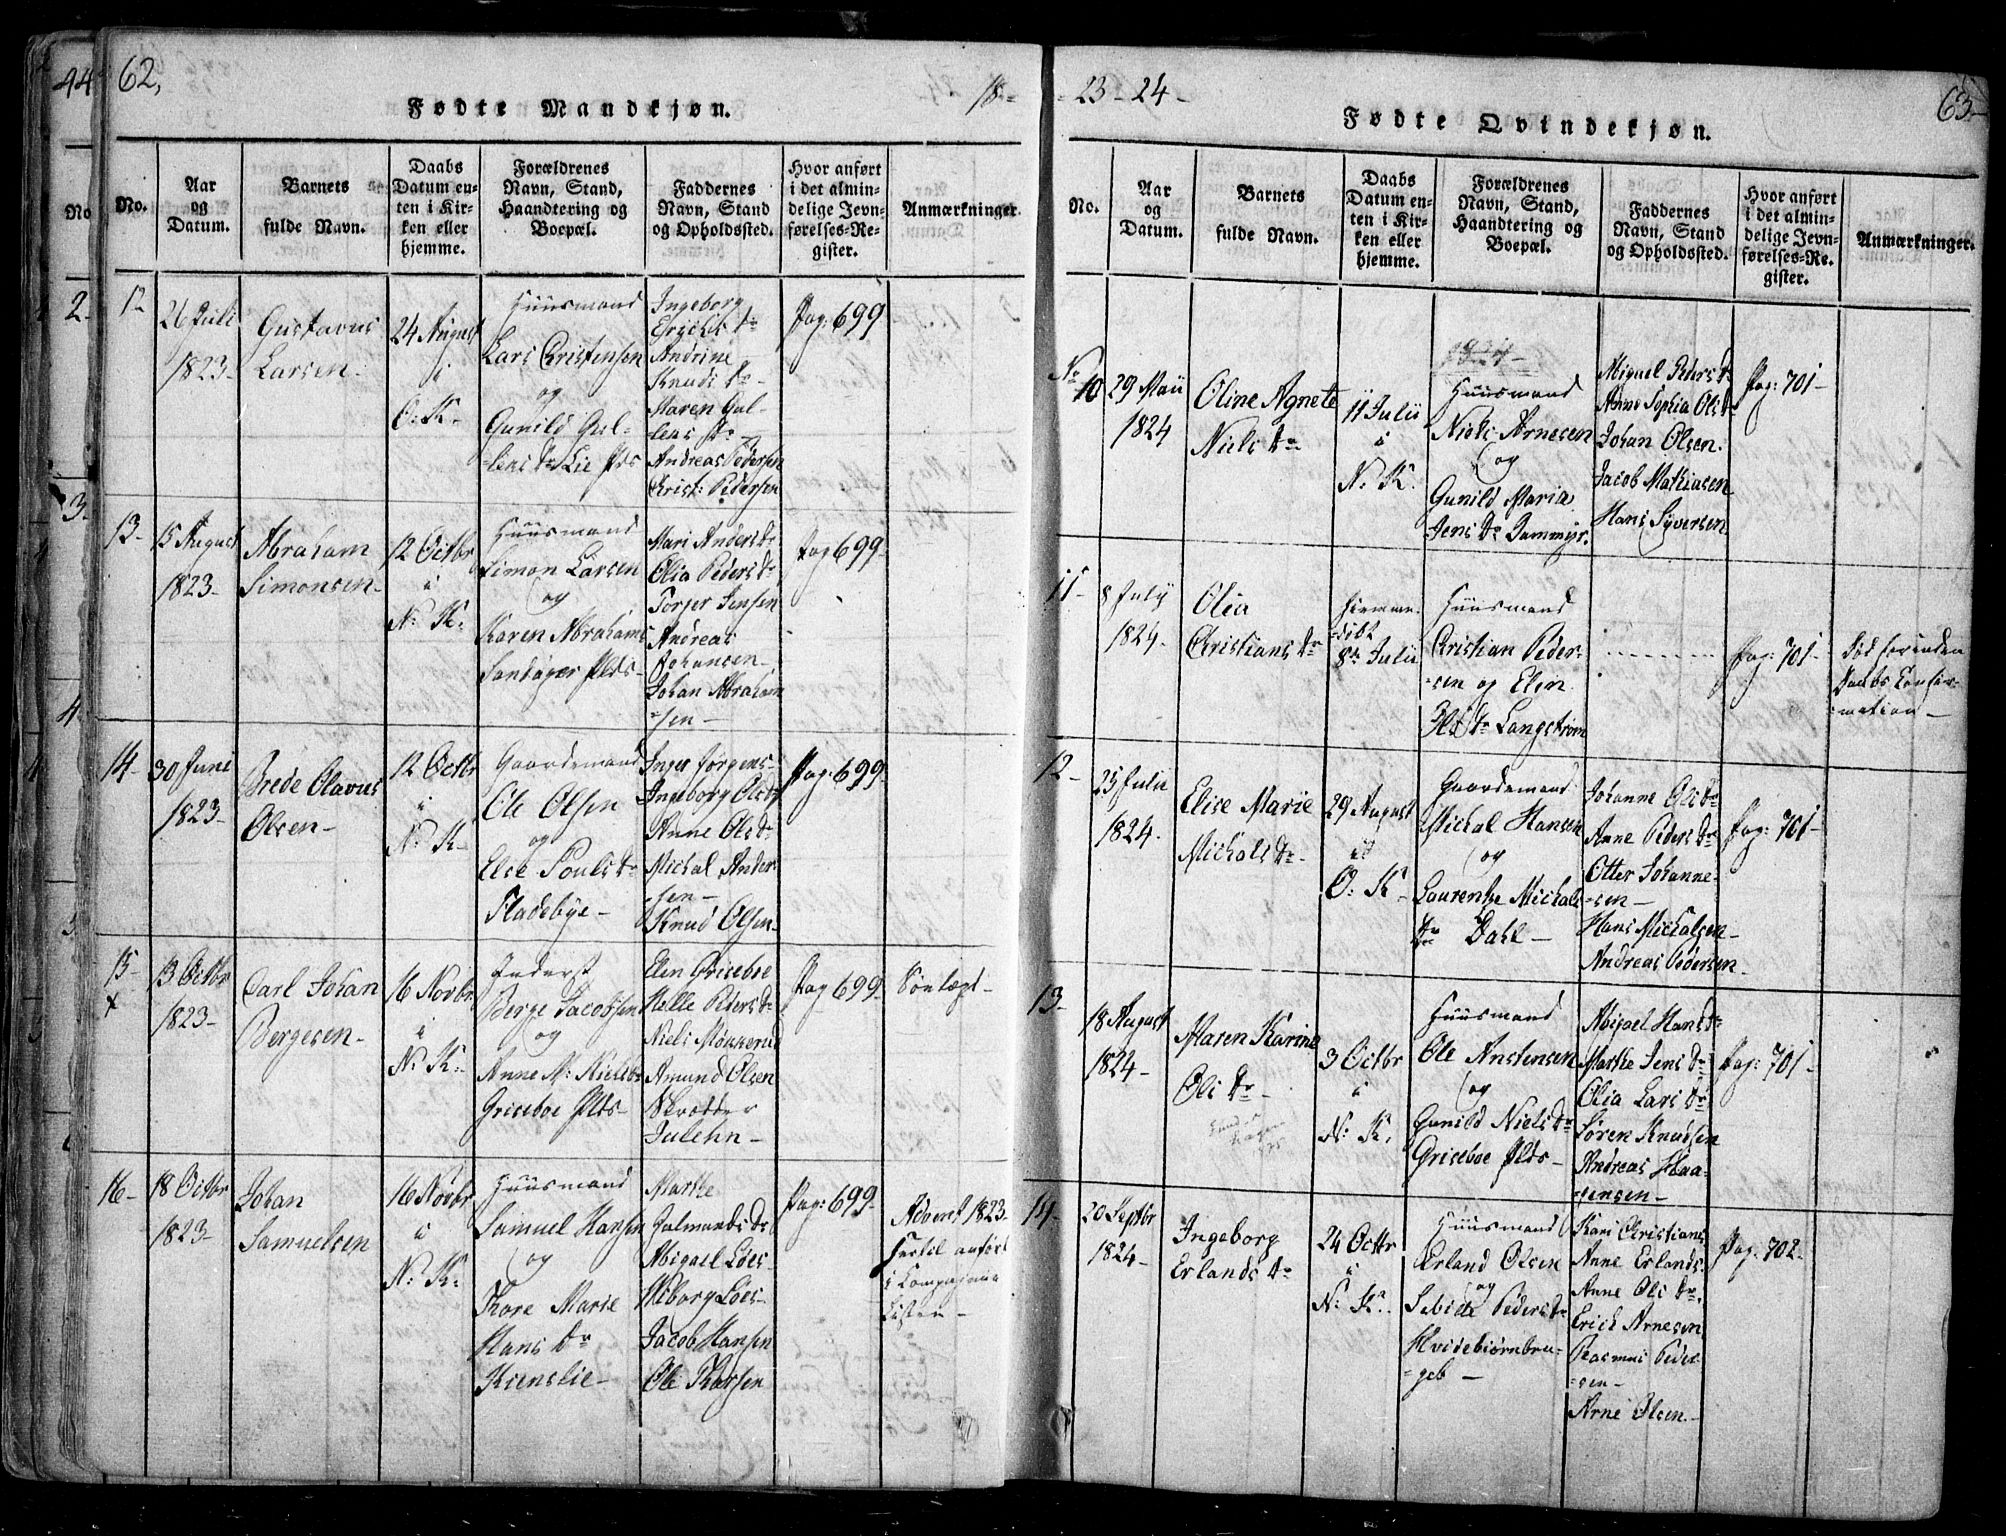 44
62,
18-
Fødte Mandkjøn.
No.
Aar
og
Datum.
Barnets
fulde Navn.
Daabs
Datum en-
ten i Kir-
ken eller
hjemme.
Forældrenes
Navn, Stand,
Haandtering og
Boepæl.
Faddernes
Navn, Stand
og Opholdssted.
Hvor anført
i det almin-
delige Jevn-
førelses-Re-
gister.
Anmærkninger.
12
26 Juli
1823-
Gustavus
Larsen-
24 August
i
O: K-
Huusmand
Lars Christensen
og
Gunild Gul-
-lens Dr Lie Plds
Ingeborg
Erichs Dr
Andrine
Knuds Dr-
Maren Gul-
lens Dr-
Andreas Pedersen
Christ: Pedersen
Pag: 699
13-
15 August
1823-
Abraham
Simonsen-
12 Octbr
i
N: K:
Huusmand
Simon Larsen
og
Karen Abrahams
Sandager Plds-
Mari Anders Dr
Olia Peders Dr
Torger Jensen
Andreas
Johansen-
Johan Abraham
-sen-
Pag 699-
14-
30 Juni
1823-
Brede Olavus
Olsen-
12 Octbr
i
N: K-
Gaardemand
Ole Olsen
og
Else Pouls Dr
Fladebye-
Inger Jørgens-
Ingeborg Ols Dr
Anne Ols Dr
Michal Ander-
sen-
Knud Olsen-
Pag: 699-
15-
x
13 Octbr
1823-
Carl Johan
Bergesen-
16 Novbr
i
N: K:
Inderst
Berge Jacobsen
og
Anne M: Niels Dr
Griseboe Plds-
Elen Griseboe
Helle Peders Dr
Niels Mønnerud
Amund Olsen
Skrædder
Julehn-
Pag 699-
16-
18 Octbr
1823-
Johan
Samuelsen
16 Novbr
i
N: K:
Huusmand
Samuel Hansen
og
Thore Marie
Hans Dr
Krenslie-
Marthe
Galmunds Dr
Abigael Løes-
Wiborg Løes-
Jacob Hansen
Ole Thorsen
Pag: 699-
Advent 1823-
-23-24-
63-
Fødte Qvindekjøn.
No.
Aar
og
Datum.
Barnets
fulde Navn.
Daabs
Datum en-
ten i Kir-
ken eller
hjemme.
Forældrenes
Navn, Stand,
Haandtering og
Boepæl.
Faddernes
Navn, Stand
og Opholdssted.
Hvor anført
i det almin-
delige Jevn-
førelses-Re-
gister.
Anmærkninger.
1824-
No
10
29 Maii
1824
Oline Agnete
Niels Dr
11 Julii
i
N: K.
Huusmand
Niels Arnesen
og
Gunild Maria
Jens Dr Dammyr.
Anne Sophia Ols Dr
Johan Olsen.
Jacob Mathiasen
Hans Syversen
Pag: 701-
11-
8 July
1824-
Olia
Christians Dr
Hiemme-
-døbt
8de Julii
Huusmand
Christian Peder-
-sen og Elen
Langstrøm
Pag: 701-
Død forinden
Daabs Confir-
-mation-
12-
25 Julii
1824.
Elise Marie
Michals Dr-
29 August
i
O: K-
Gaardemand
Michal Hansen
og
Laurentze Michals
Dr Dahl-
Johanne Ols Dr
Anne Peders Dr
Otter Johanne-
-sen-
Hans Michalsen-
Andreas Pedersen-
Pag: 701-
13-
18 August
1824-
Maren Karine
Ols Dr-
3 Octbr
i
N: K.
Huusmand
Ole Anstensen
og
Gunild Niels Dr
Griseboe Plds-
Abigael Hans Dr
Marthe Jens Dr
Olia Lars Dr
Søren Knudsen
Andreas Haa-
-gensen-
Pag: 701-
14-
20 Septbr
1824-
Ingeborg
Erlands Dr
24 Octbr
i
N: K.
Huusmand
Erland Olsen
og
Sebille Peders Dr
Hvidebiørnbru-
-geb-
Kari Christians
Anne Erlands
Anne Ols Dr.
Erich Arnesen
Rasmus Peder-
-sen-
Arne Olsen-
Pag: 702-